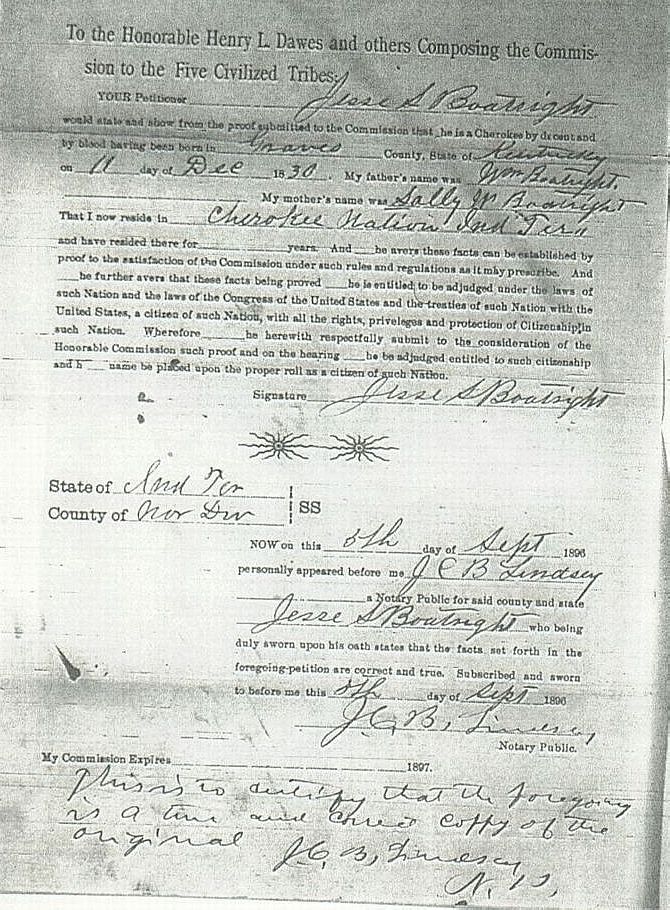 To the Honorable Henry L. Dawes and others Composing the Commis-
sion to the Five Civilized Tribes:
YOUR Petitioner Jesse S Boatright
would state and show from the proof submitted to the Commission that he is a Cherokee by decent and
by blood having been born in Graves County, State of Kentucky
on 11 day of Dec 1830. My father's name was Wm Boatright.
My mother's name was Sally W Boatright
That I now reside in Cherokee Nation Ind Ter
and have resided there for years. And he avers these facts can be established by
proof to the satisfaction of the Commission under such rules and regulations as it may prescribe. And
he further avers that these facts being proved he is entitled to be adjudged under the laws of
such Nation and the laws of the Congress of the United States and the treaties of such Nation with the
United States, a citizen of such Nation, with all the rights, priveleges and protection of Citizenship in
such Nation. Wherefore he herewith respectfully submit to the consideration of the
Honorable Commission such proof and on the hearing he be adjudged entitled to such citizenship
and h name be placed upon the proper roll as a citizen of such Nation.
Signature Jesse S Boatright
State of Ind Ter
County of Nor Div SS
NOW on this 5th day of Sept 1896
personally appeared before me J C B Lindsey
a Notary Public for said county and state
Jesse S Boatright who being
duly sworn upon his oath states that the facts set forth in the
foregoing petition are correct and true. Subscribed and sworn
to before me this 5th day of Sept 1896
J. C. B, Lindsey
Notary Public.
My Commission Expires 1897.
This is to certify that the foregoing
is a true and correct coppy of the
original J. C. B, Lindsey
N. P.